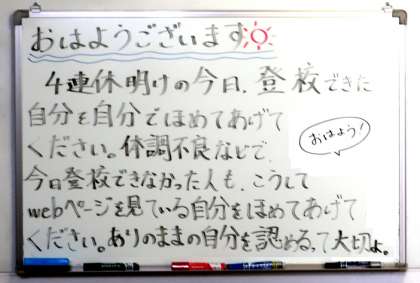 おはようございます
4連休明けの今日、登校できた
自分を自分でほめてあげて
ください。体調不良などで、
おはよう!
今日登校できなかった人も、こうして
webページを見ている自分をほめてあげて
ください。ありのままの自分を認める、って大切よ。